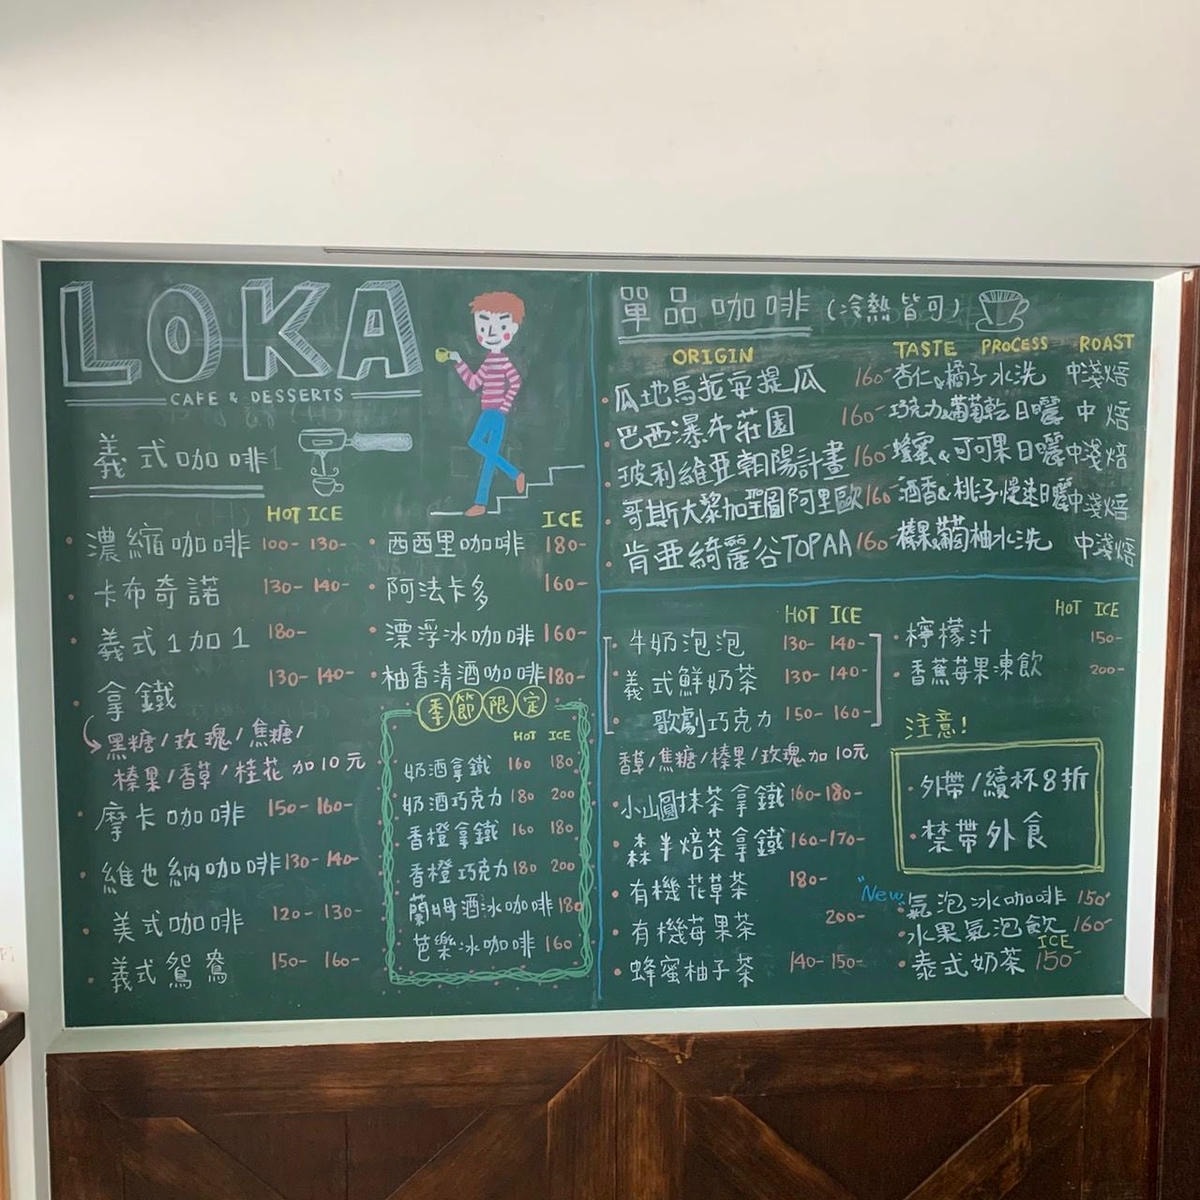 LOKA
CAFE & DESSERTS
義式咖啡
HOT ICE
濃縮咖啡 100- 130-
卡布奇諾 130- 140-
義式1加1 180-
拿鐵 130- 140-
黑糖/玫瑰/焦糖/
榛果/香草/桂花 加10元
摩卡咖啡 150- 160-
維也納咖啡 130- 140-
美式咖啡 120- 130-
義式鴛鴦 150- 160-
ICE
西西里咖啡 180-
阿法卡多 160-
漂浮冰咖啡 160-
柚香清酒咖啡 180-
季節限定
HOT ICE
奶酒拿鐵 160 180
奶酒巧克力 180 200
香橙拿鐵 160 180
香橙巧克力 180 200
蘭姆酒冰咖啡 180
芭樂冰咖啡 160
單品咖啡 (冷熱皆可)
ORIGIN TASTE PROCESS ROAST
瓜地馬拉安提瓜 160- 杏仁&橘子 水洗 中淺焙
巴西瀑布莊園 160- 巧克力&葡萄乾 日曬 中焙
玻利維亞朝陽計畫 160- 蜂蜜&可可果 日曬 中淺焙
哥斯大黎加聖圖阿里歐 160- 酒香&桃子 慢速日曬 中淺焙
肯亞綺麗谷TOPAA 160- 葡萄柚 水洗 中淺焙
HOT ICE
牛奶泡泡 130- 140-
義式鮮奶茶 130- 140-
歌劇巧克力 150- 160-
香草/焦糖/榛果/玫瑰 加10元
小山園抹茶拿鐵 160- 180-
森半焙茶拿鐵 160- 170-
有機花草茶 180-
有機莓果茶 200-
蜂蜜柚子茶 140- 150-
HOT ICE
檸檬汁 150-
香蕉莓果凍飲 200-
注意!
外帶/續杯8折
禁帶外食
"New"
氣泡冰咖啡 150-
水果氣泡飲 160-
ICE
泰式奶茶 150-